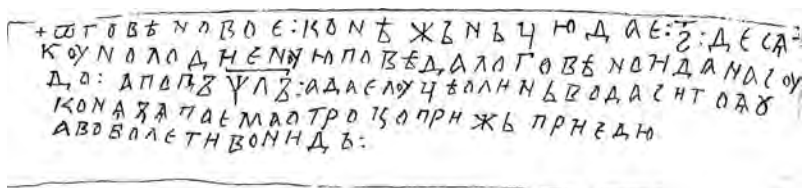 +ѿговѣновоє:конѣжьньцюдає:з҃:десѧ
коунолодиєноюповѣдалоговѣноиданасоу
до:апопъѱлъ:адаєлоуцѣолиньводаситоаꙋ
конѧꙗапоємлаотроцоприжьприєдю
авоболєтивоиидь: